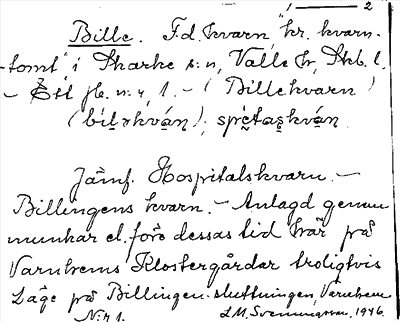 1 — 2
Bille. F.d. kvarn "kr. kvarn-
tomt" i Skarke s:n, Valle hd, Skb. l.
– Ett jb. n:r 1. – (Billekvarn)
(bíləkván̥); sprétas̥kván̥.
Jämf. Hospitalskvarn. –
Billingens kvarn. – Anlagd genom
munkar el. före dessas tid här på
Varnhems Klostergårdar troligtvis
Läge på Billingen-sluttningen, Varnhem
N:r 1. L.M. Svenungsson, 1946.